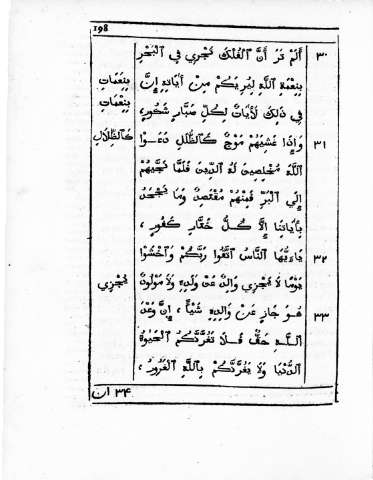 ١٩٨
٣٠ أَلَمْ تَرَ أَنَّ ٱلْفُلْكَ تَجْرِي فِي ٱلْبَحْرِ
بِنِعْمَةِ ٱللَّهِ لِيُرِيَكُمْ مِنْ أَيَاتِهِ إِنَّ بِنِعَمَاتِ
فِي ذَلِكَ لَأَيَاتٌ لِكُلِّ صَبَّارٍ شَكُورٍ، بِنِعْمَاتِ
٣١ وَإِذَا غَشِيَهُمْ مَوْجٌ كَٱلظُّلَلِ دَعَوْا كَٱلظِّلَالِ
ٱللَّهَ مُخْلِصِينَ لَهُ ٱلدِّينَ فَلَمَّا نَجَّيهُمْ
إِلَى ٱلْبَرِّ فَمِنْهُمْ مُقْتَصِدٌ وَمَا يَجْحَدُ
بِأَيَاتِنَا إِلَّا كُلُّ خَتَّارٍ كَفُورٍ،
٣٢ يَاءَيُّهَا ٱلنَّاسُ ٱتَّقُوا رَبَّكُمْ وَٱخْشَوْا
يَوْمًا لَا يَجْزِي وَالِدٌ عَنْ وَلَدِهِ وَلَا مَوْلُودٌ يُجْزِي
٣٣ هُوَ جَازٍ عَنْ وَالِدِهِ شَيْأً، إِنَّ وَعْدَ
ٱللَّهِ حَقٌّ فَلَا تَغُرَّنَّكُمُ ٱلْحَيَوةُ
ٱلدُّنْيَا وَلَا يَغُرَّنَّكُمْ بِٱللَّهِ ٱلْغَرُورُ،
٣٤ ان